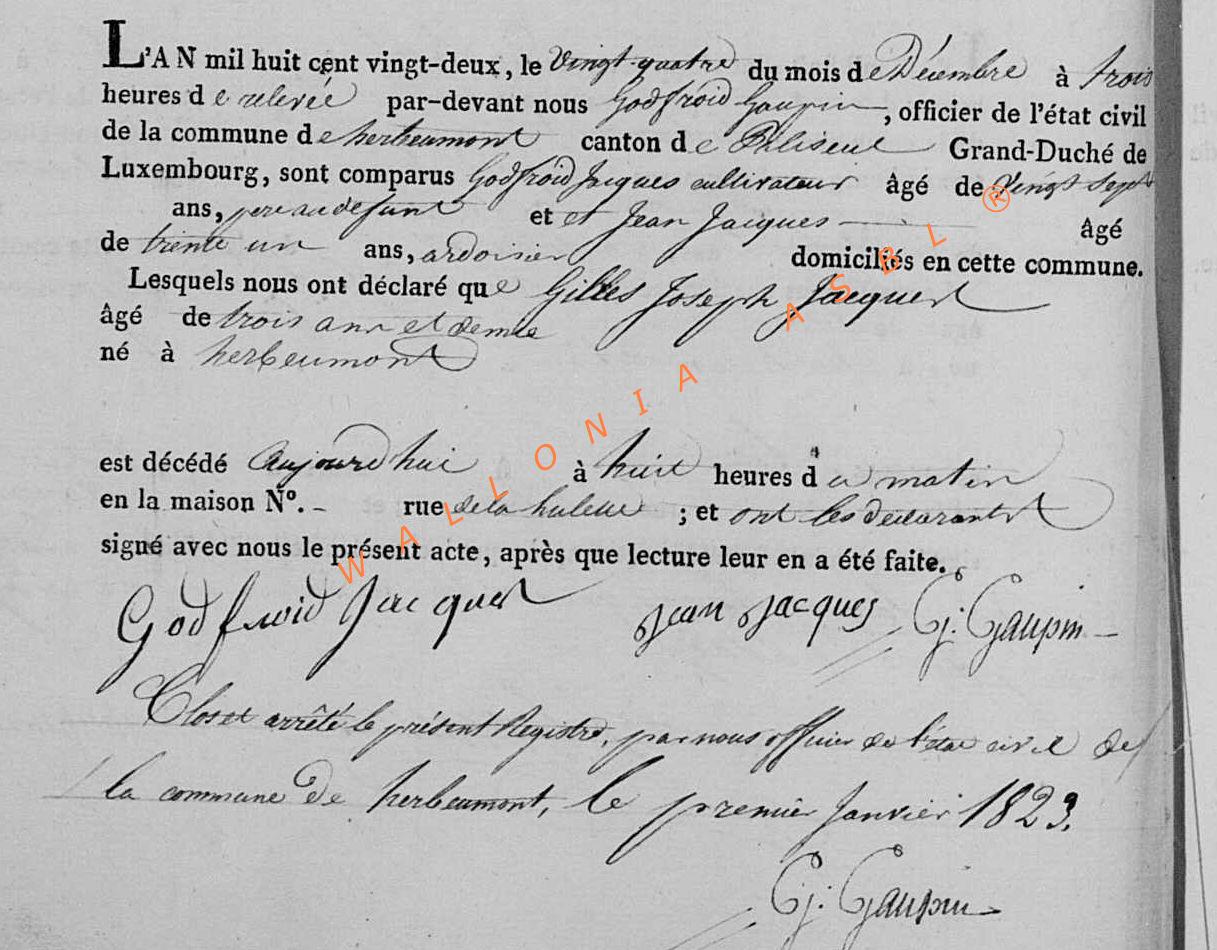 L'AN mil huit cent vingt-deux, le Vingt quatre du mois de Décembre à trois
heures de relevée par-devant nous Godfroid Gaupin, officier de l'état civil
de la commune de herbeumont canton de Paliseul Grand-Duché de
Luxembourg, sont comparus Godfroid Jacques cultivateur âgé de Vingt Sept
ans, pere au defunt et et Jean Jacques âgé
de trente un ans, ardoisier domiciliés en cette commune.
Lesquels nous ont déclaré que Gilles Joseph Jacques
âgé de trois ans et demie
né à herbeumont
est décédé Aujourdhui à huit heures du matin
en la maison N°. - rue de la ; et ont les déclarants
signé avec nous le présent acte, après que lecture leur en a été faite.
Godfroid Jacques Jean Jacques G: Gaupin
Clos et arrêté le présent Registre, par nous officier de l'état civil de
la commune de herbeumont, le premier Janvier 1823.
G: Gaupin
WALLONIA ASBL ®